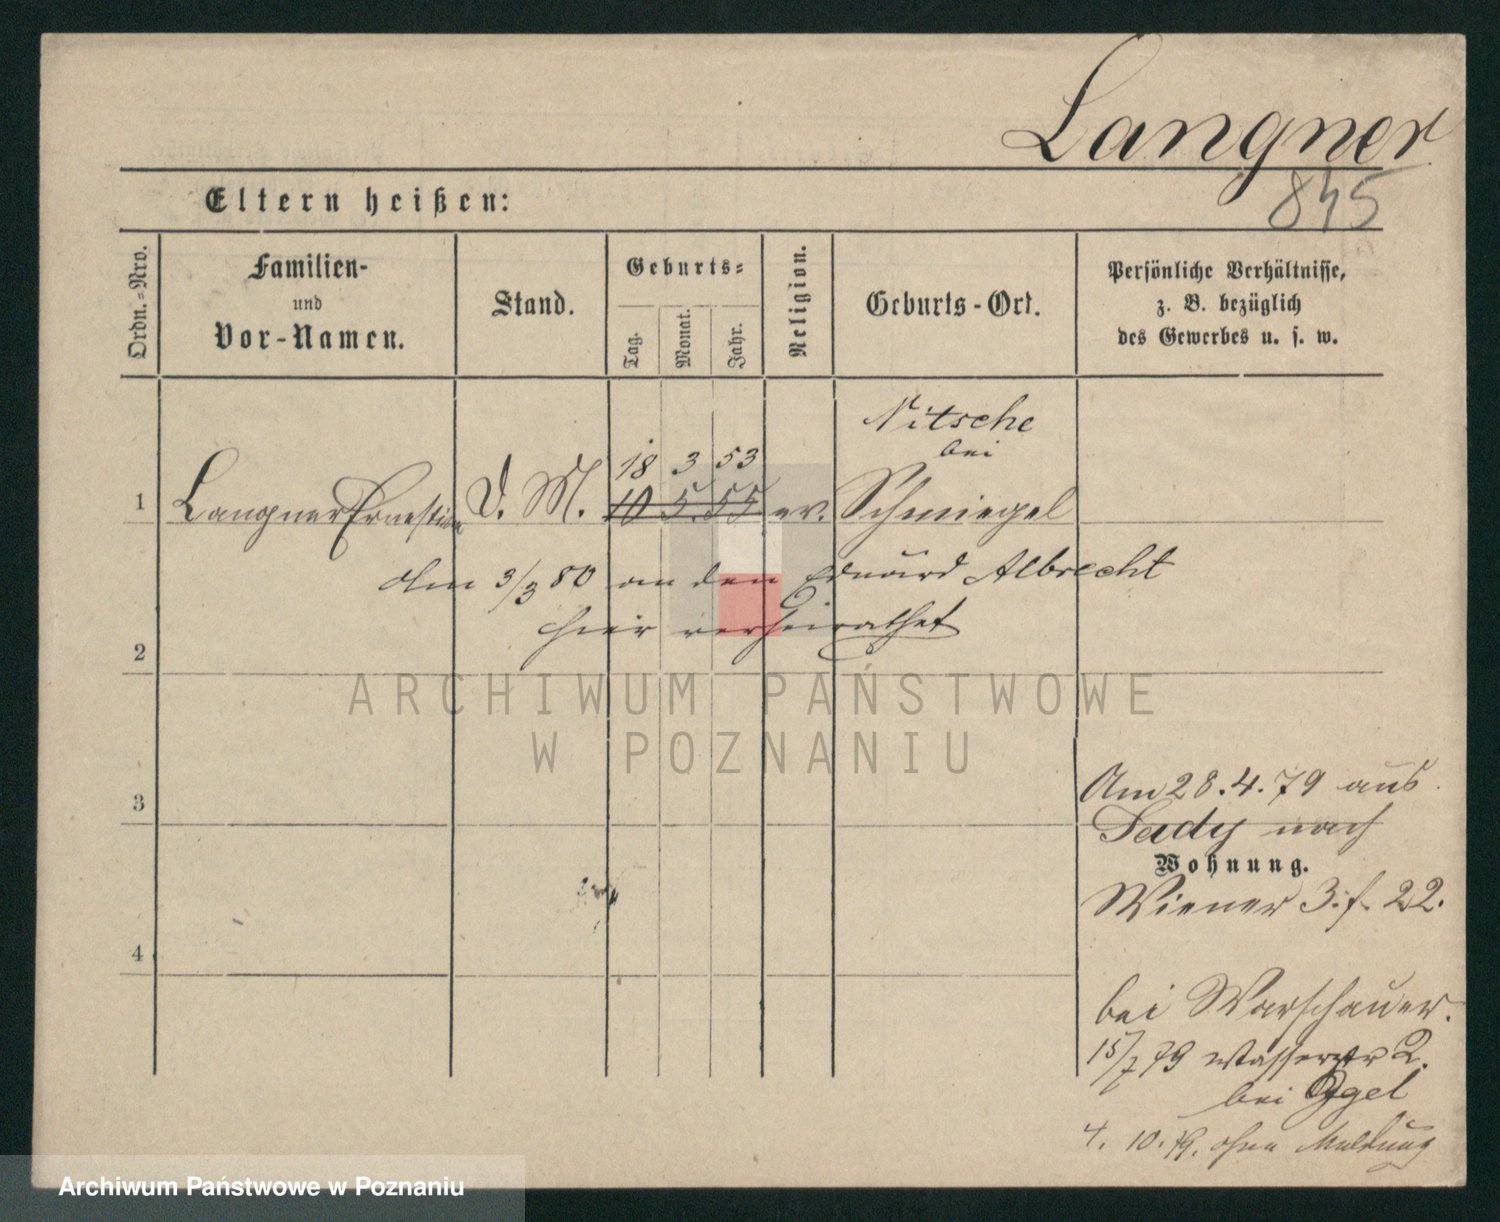 Langner
845
Eltern heißen:
Ordn.-Nro.
Familien-
und
Vor-Namen.
Stand.
Geburts-
Tag.
Monat.
Jahr.
Religion.
Geburts-Ort.
Persönliche Verhältnisse,
z. B. bezüglich
des Gewerbes u. s. w.
Nitsche
bei
18 3 53
1 Langner Ernestine D. M. 10 5. 55 ev. Schmiegel
Am 3/3 80 an den Eduard Albrecht
hier verheirathet
2
ARCHIWUM PAŃSTWOWE
W POZNANIU
3
Am 28.4.79 aus
Sady nach
Wohnung.
Wiener 22.
4
bei Warschauer.
15/7 79 Wasserstr 2.
bei
4. 10. 79. ohne Meldung
Archiwum Państwowe w Poznaniu